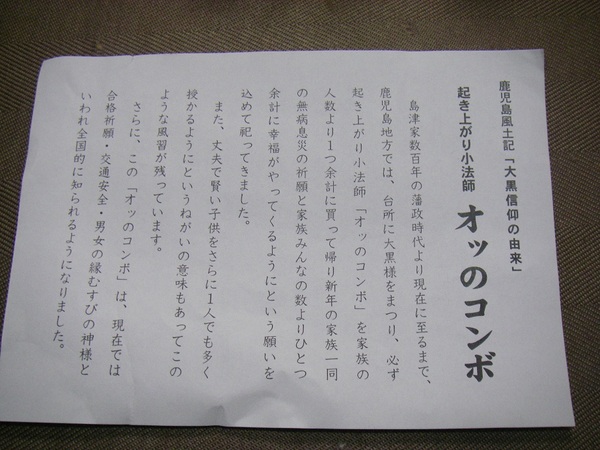 鹿児島風土記「大黒信仰の由来」
起き上がり小法師 オッのコンボ
島津家数百年の藩政時代より現在に至るまで、
鹿児島地方では、台所に大黒様をまつり、必ず
起き上がり小法師「オッのコンボ」を家族の
人数より1つ余計に買って帰り新年の家族一同
の無病息災の祈願と家族みんなの数よりひとつ
余計に幸福がやってくるようにという願いを
込めて祀ってきました。
また、丈夫で賢い子供をさらに1人でも多く
授かるようにというねがいの意味もあってこの
ような風習が残っています。
さらに、この「オッのコンボ」は、現在では
合格祈願・交通安全・男女の縁むすびの神様と
いわれ全国的に知られるようになりました。